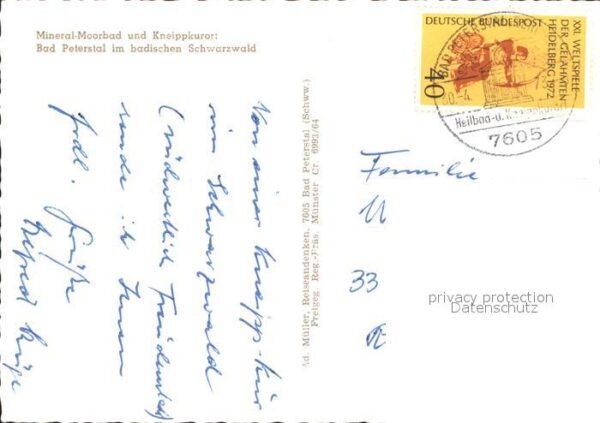 Mineral-Moorbad und Kneippkurort
Bad Peterstal im badischen Schwarzwald
Von einer Kneipp-Kur
im Schwarzwald
(südwestlich Freudenstadt)
sende ich Ihnen
frdl. Grüße
Alfred
Ad. Müller, Reiseandenken, 7605 Bad Peterstal (Schww.)
Freigeg. Reg.-Präs. Münster Cr. 6993/64
DEUTSCHE BUNDESPOST
40
XXI. WELTSPIELE
DER GELÄHMTEN
HEIDELBERG 1972
BAD PETERSTAL
Heilbad-u.
7605
Familie
33
privacy protection
Datenschutz